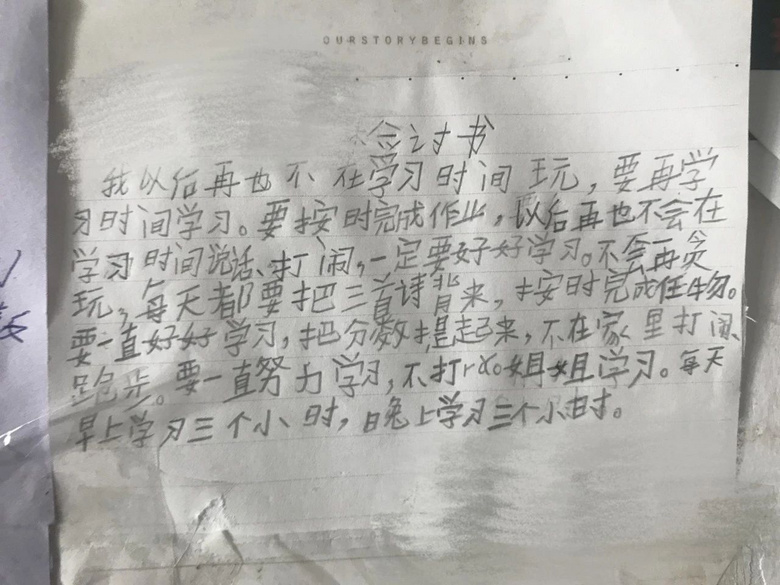 OURSTORYBEGINS
检讨书
我以后再也不在学习时间玩，要再学
习时间学习。要按时完成作业，以后再也不会在
学习时间说话、打闹，一定要好好学习。不会再贪
玩，每天都要把三首诗背来，按时完成任物。
要一直好好学习，把分数提起来，不在家里打闹、
跑步。要一直努力学习，不打rǎo姐姐学习。每天
早上学习三个小时，晚上学习三个小时。